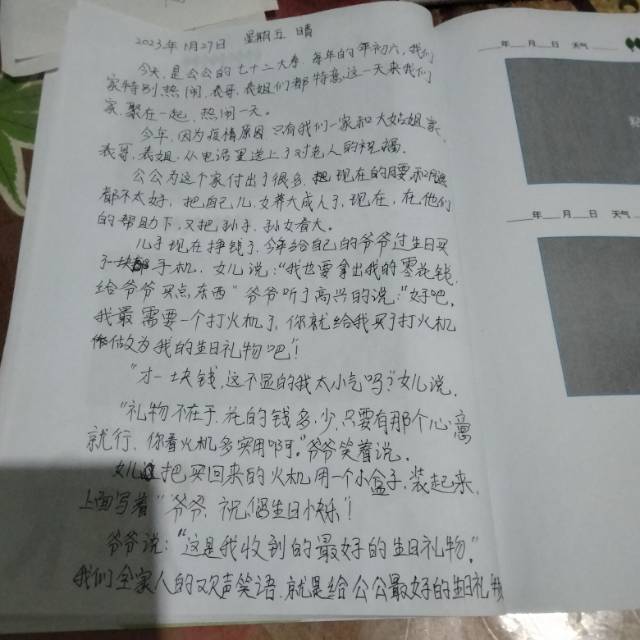 2023年1月27日 星期五 晴
今天是公公的七十二大寿 每年的年初六,我们
家特别热闹,表哥、表姐们都特意这一天来我们
家,聚在一起,热闹一天。
今年,因为疫情原因,只有我们一家和大姑姐家,
表哥、表姐,从电话里送上了对老人的祝福。
公公为这个家付出了很多,现在的腰和腿
都不太好,把自己儿、女养大成人了,现在,在他们
的帮助下,又把孙子、孙女看大。
儿子现在挣钱了,今年给自己的爷爷过生日买
了一块手机,女儿说:“我也要拿出我的零花钱,
给爷爷买点东西”爷爷听了高兴的说:“好吧,
我最需要一个打火机了,你就给我买了打火机
做为我的生日礼物吧!”
“才一块钱,这不显的我太小气吗?”女儿说。
“礼物不在于花的钱多、少,只要有那个心意
就行,你看火机多实用啊。”爷爷笑着说。
女儿把买回来的火机用一个小盒子,装起来,
上面写着“爷爷 祝您生日快乐!
爷爷说:“这是我收到的最好的生日礼物。”
我们全家人的欢声笑语,就是给公公最好的生日礼物
年 月 日 天气
年 月 日 天气